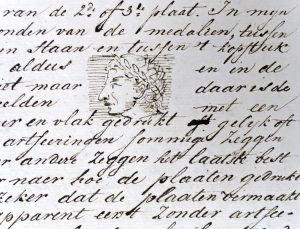 van de 2de of 3de plaat. In mijn
onden van de medalien, tussen
en staan en tussen 't kopstuk
aldus en in de
iet maar daar is de
eelden met een
ur en vlak gedrukt gelyk of
artseeringen sommige zeggen
er andere zeggen het laatste best
er naer hoe de plaaten gedruk
zeker dat de plaaten vermaakt
apparent eerst zonder artsee-